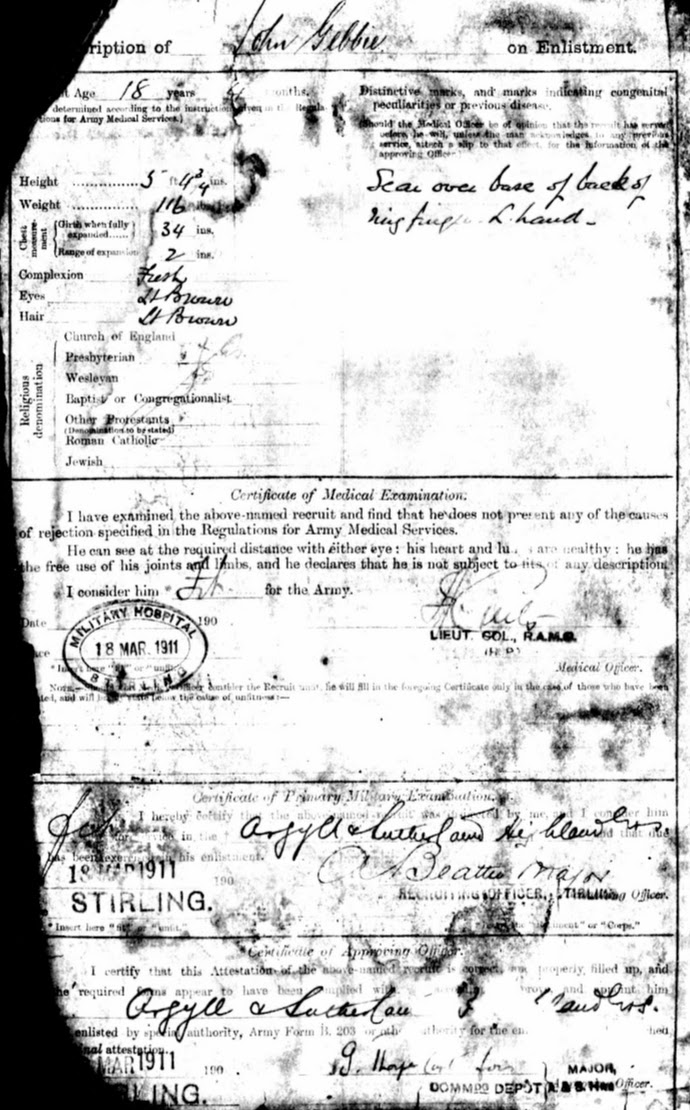 ription of John Gebbie on Enlistment.
t Age 18 years onths.
determined according to the instruct iven in the Regula-
ions for Army Medical Services.)
Distinctive marks, and marks indicating congenital
peculiarities or previous disease.
(Should the Medical Officer be of opinion that the recruit has served
before, he will, unless the man acknowledges to any previous
service, attach a slip to that effect, for the information of the
approving Officer
Height 5 ft. 4 3/4 ins.
Weight 116 lbs.
Chest measure-ment
Girth when fully expanded 34 ins.
Range of expansion 2 ins.
Complexion Fresh
Eyes Lt Brown
Hair Lt Brown
Scar over base of back of
ring finger L. hand -
Religious denomination
Church of England
Presbyterian
Wesleyan
Baptist or Congregationalist
Other Protestants
(Denomination to be stated)
Roman Catholic
Jewish
Certificate of Medical Examination.
I have examined the above-named recruit and find that he does not present any of the causes
of rejection specified in the Regulations for Army Medical Services.
He can see at the required distance with either eye: his heart and lu s are healthy: he has
the free use of his joints and limbs, and he declares that he is not subject to fits of any description.
I consider him * Fit for the Army.
Date 190
MILITARY HOSPITAL
18 MAR. 1911
STIRLING
LIEUT. COL., R.A.M.C.
(R.P.)
Medical Officer.
*Insert here "fit" or "unfit"
consider the Recruit unfit, he will fill in the foregoing Certificate only in the case of those who have been
ted, and will state below the cause of unfitness:—
Certificate of Primary Military Examination.
I hereby certify that the above-named recruit was inspected by me, and I consider him
service in the Argyll & Sutherland Highlanders and that due
has been exercised in his enlistment.
18 MAR 1911 190
Beattie Major
STIRLING.
RECRUITING OFFICER, STIRLING
ng Officer.
*Insert here "fit" or "unfit." "Corps."
Certificate of Approving Officer.
I certify that this Attestation of the above-named recruit is correct, and properly filled up, and
he required forms appear to have been complied with. approve, and appoint him
Argyll & Sutherlan
enlisted by special authority, Army Form B. 203 or other authority for the en hed
nal attestation.
MAR 1911 190
MAJOR,
COMMDG DEPOT A.& S. Hrs
Officer.
RLING.